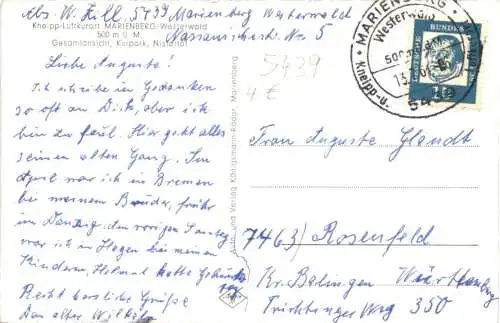 Abs. W. Zill, 5439 Marienberg Westerwald
Nassauische Str. No 5
Kneipp-Luftkurort MARIENBERG-Westerwald
500 m ü. M.
Gesamtansicht, Kurpark, Nistertal
5439
4 €
MARIENBERG
Westerwald
500 m ü. M.
Kneipp-u.
13.
5439
DEUTSCHE BUNDESPOST
Liebe Auguste!
Ich schreibe in Gedanken
so oft an Dich, aber ich
bin zu faul. Hier geht alles
seinen alten Gang. Im
April war ich in Bremen
bei meinem Bruder, früher
in Danzig. Am vorigen Sonntag
war ich in Hagen bei meinen
Kindern, Helmut hatte Geburtstag
Recht herzliche Grüße
Dein alter Wilhelm
Foto und Verlag Königsmann-Röder, Marienberg
Frau Auguste Glandt
7463) Rosenfeld
Kr. Balingen Württemberg
Trichtinger Weg 350